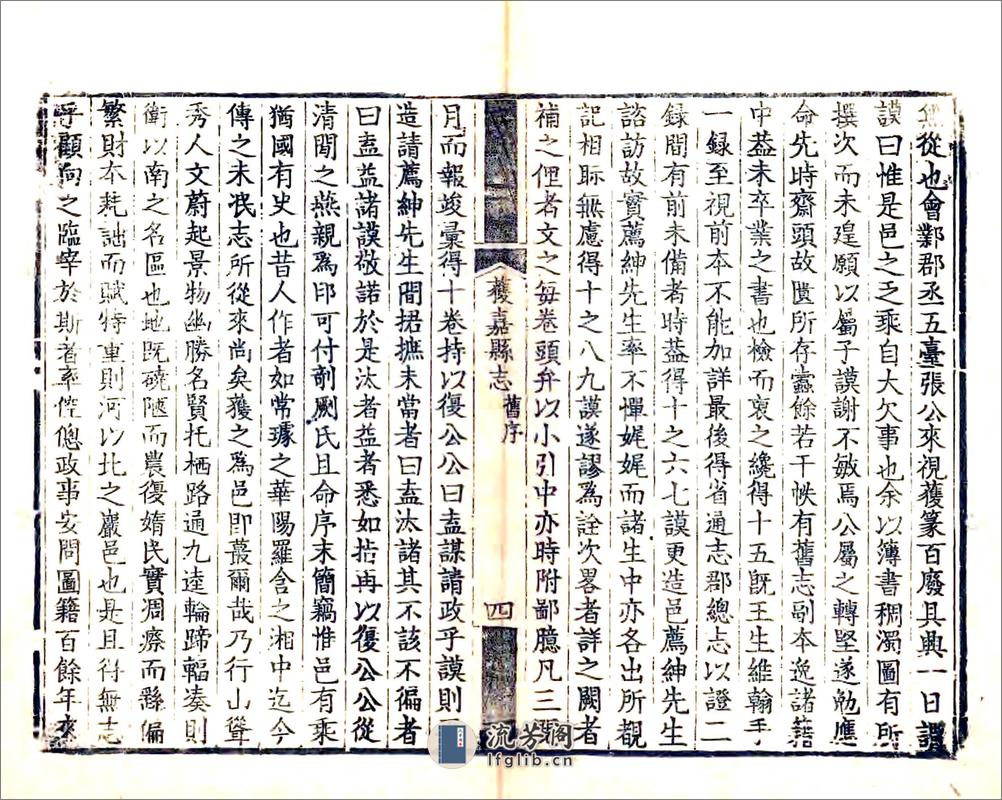 從也會鄴郡丞五臺張公來視獲篆百廢具興一日
謨曰惟是邑之乏乘自大欠事也余以簿書稠濁圖有所
撰次而未遑願以屬子謨謝不敏焉公屬之轉堅遂勉應
命先時齋頭故匱所存蠹餘若干帙有舊志副本逸諸籍
中葢未卒業之書也檢而裒之纔得十五旣王生維翰手
一錄至視前本不能加詳最後得省通志郡總志以證二
錄間有前未備者時葢得十之六七謨更造邑薦紳先生
諮訪故實薦紳先生率不憚娓娓而諸生中亦各出所覩
記相眎無慮得十之八九謨遂謬爲詮次畧者詳之闕者
補之俚者文之每卷頭弁以小引中亦時附鄙臆凡三
獲嘉縣志 舊序 四
月而報竣彙得十卷持以復公公曰盍謀請政乎謨則
造請薦紳先生間捃摭未當者曰盍汰諸其不該不徧者
曰盍益諸謨敬諾於是汰者益者悉如指再以復公公從
清閒之燕親爲印可付剞劂氏且命序末簡竊惟邑有乘
猶國有史也昔人作者如常璩之華陽羅含之湘中迄今
傳之未泯志所從來尚矣獲之爲邑卽蕞爾哉乃行山聳
秀人文蔚起景物幽勝名賢托栖路通九逵輪蹄輻凑則
衛以南之名區也地旣磽陋而農復媠民實凋瘵而縣偏
繁財本耗詘而賦特重則河以北之巖邑也是且得無志
乎顧向之臨宰於斯者率倥傯政事安問圖籍百餘年來
流芳閣
lfglib.cn